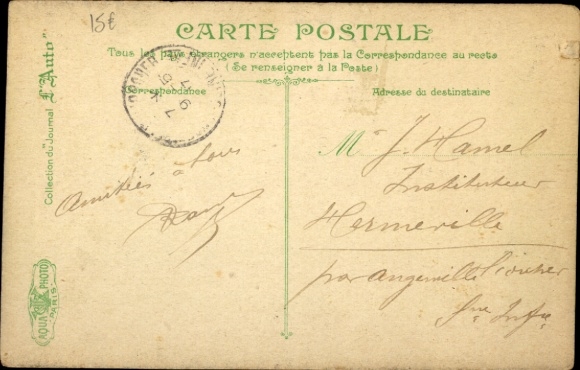 15€
CARTE POSTALE
Tous les pays étrangers n'acceptent pas la Correspondance au recto
(Se renseigner à la Poste)
Correspondance
Amitiés à tous
Adresse du destinataire
M. J. Hamel
Instituteur
Hermeville
par Angerville l'orcher
Sne Infre
Collection du Journal "L'Auto"
AQUA PHOTO
PARIS